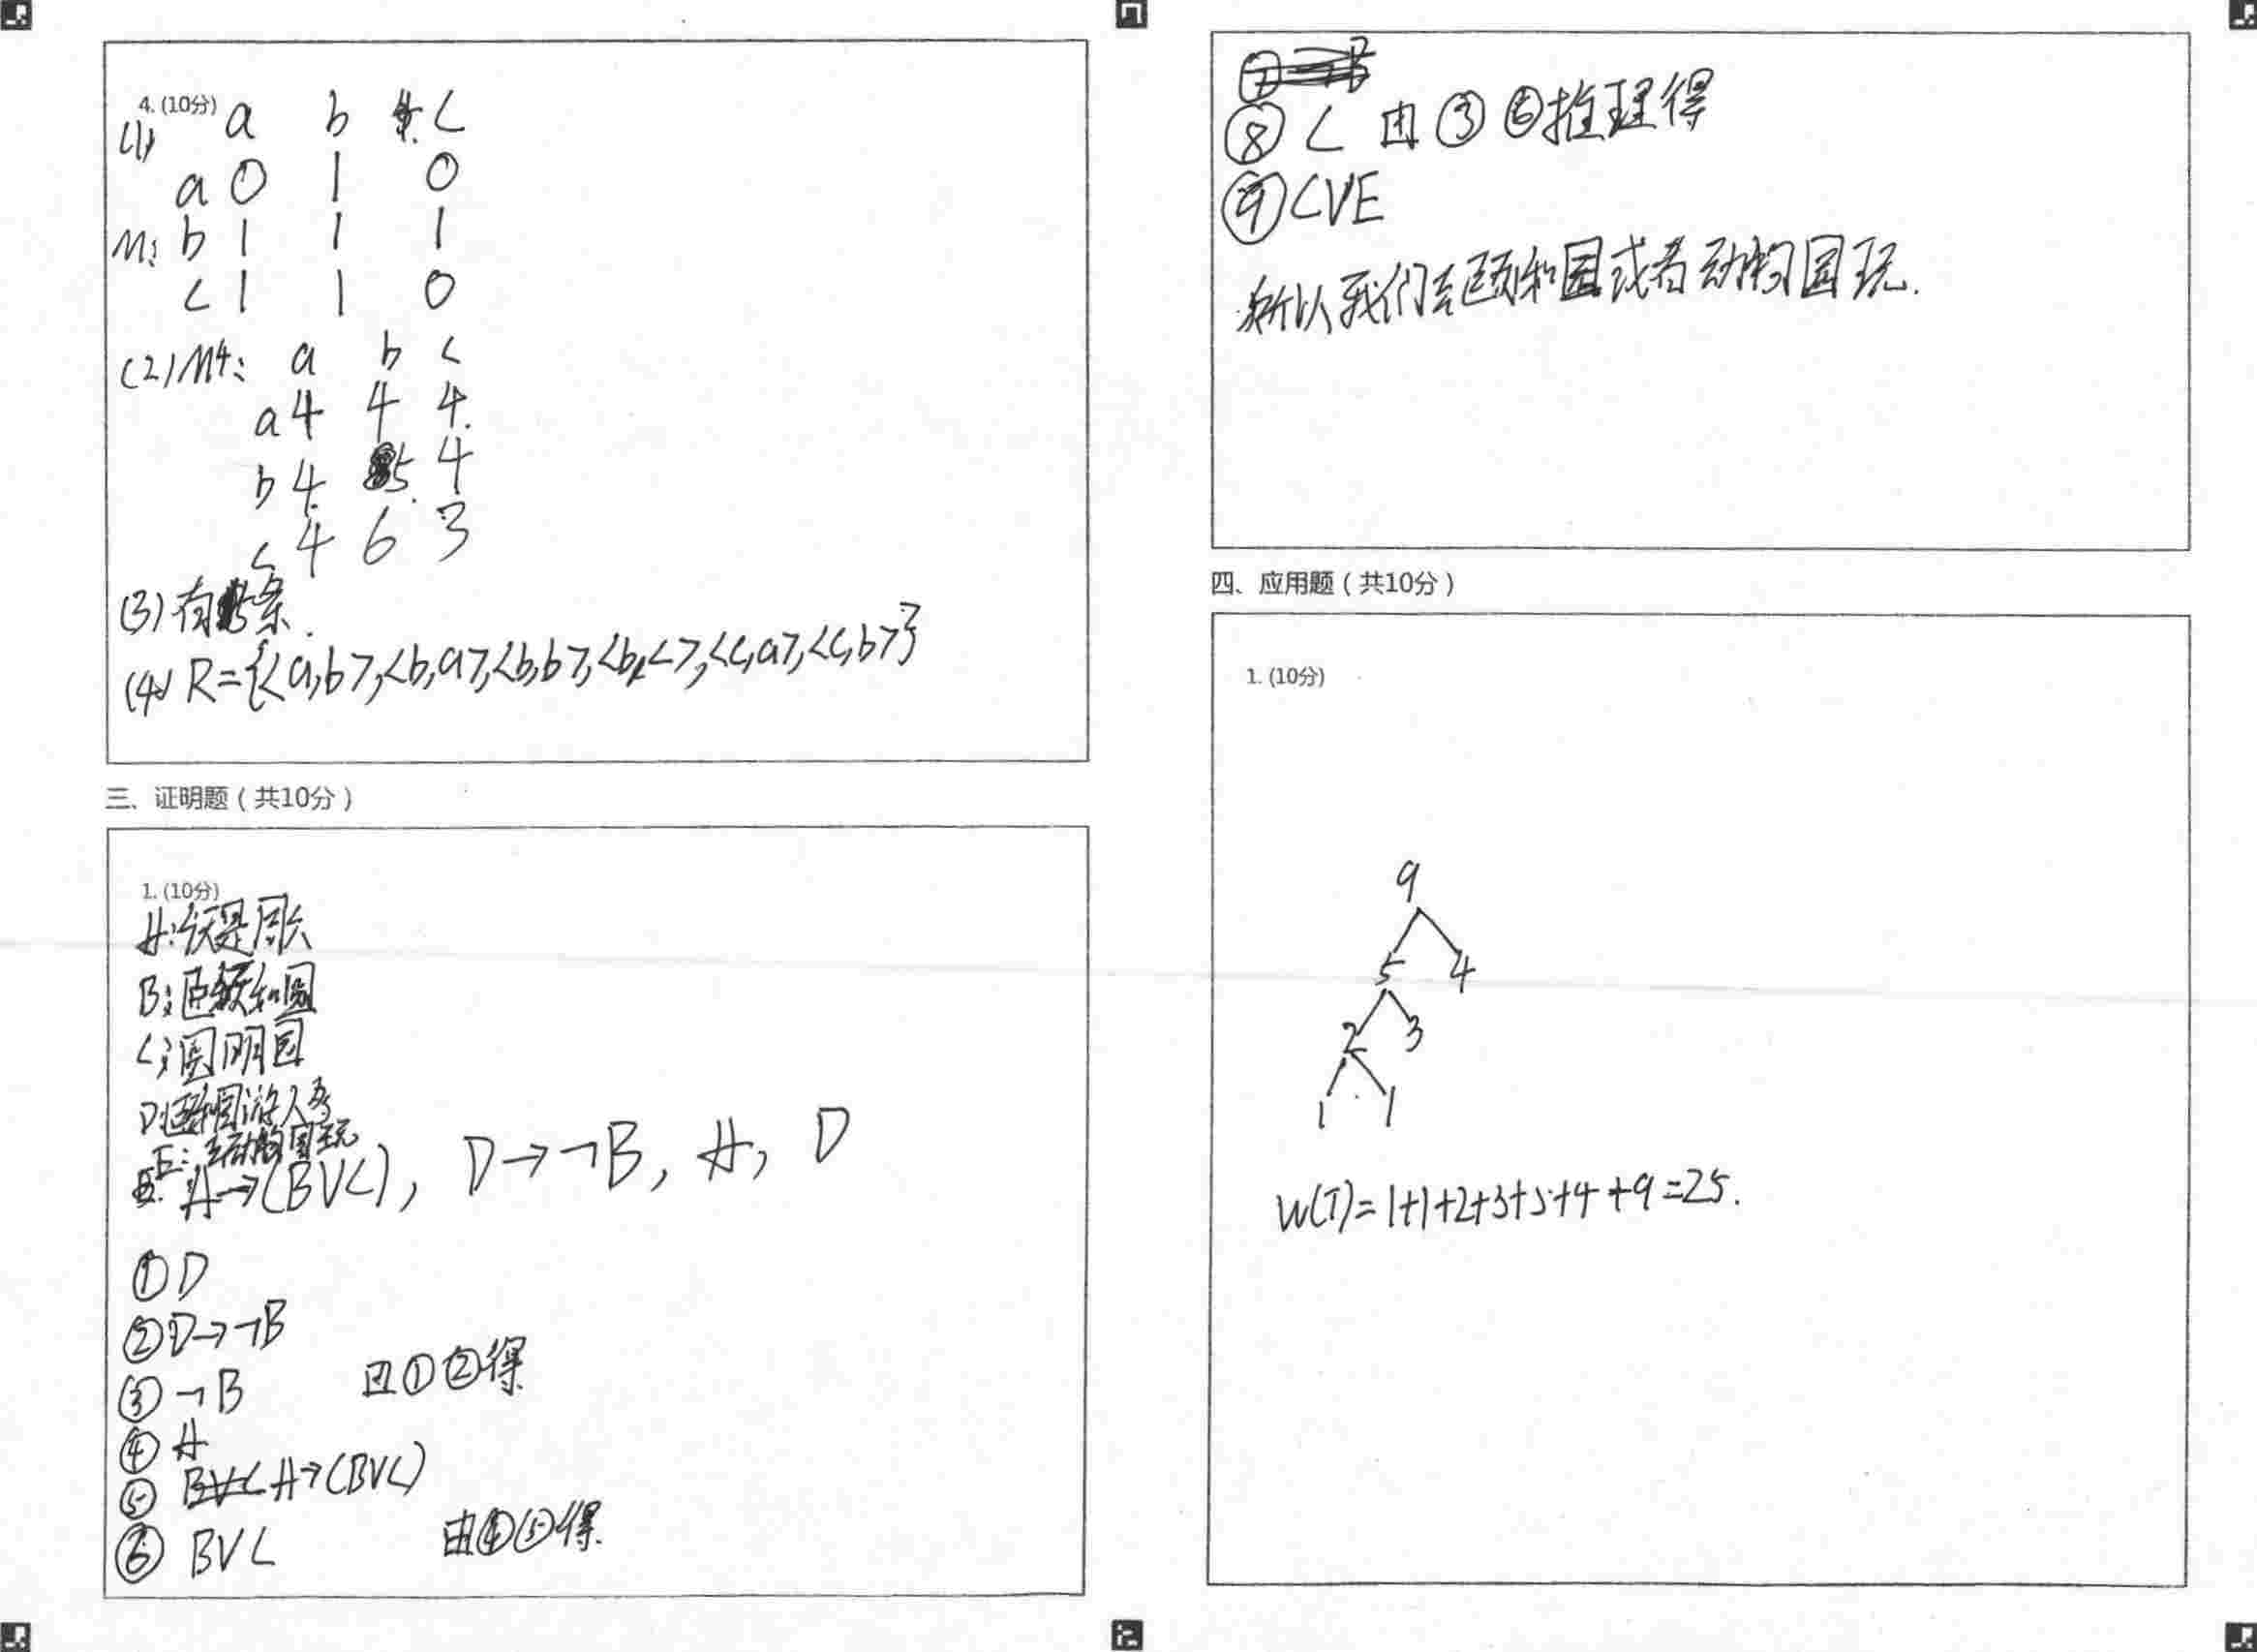 4. (10分)
(1) a b c
a 0 1 0
M: b 1 1 1
c 1 1 0
(2) M4: a b c
a 4 4 4.
b 4. 5. 4
c 4 6 3
(3) 有 条.
(4) R={<a,b>,<b,a>,<b,b>,<b,c>,<c,a>,<c,b>}
三、证明题(共10分)
1. (10分)
A: 今天是周六
B: 颐和圆
C: 圆明园
D: 颐和园游人多
E: 去动物园玩
A→(B∨C), D→¬B, A, D
① D
② D→¬B
③ ¬B 由①②得
④ A
⑤ A→(B∨C)
⑥ B∨C 由④⑤得.
⑧ C 由③⑥推理得
⑨ C∨E
所以我们去颐和园或者动物园玩.
四、应用题(共10分)
1. (10分)
9
5 4
2 3
1 1
W(T)=1+1+2+3+5+4+9=25.